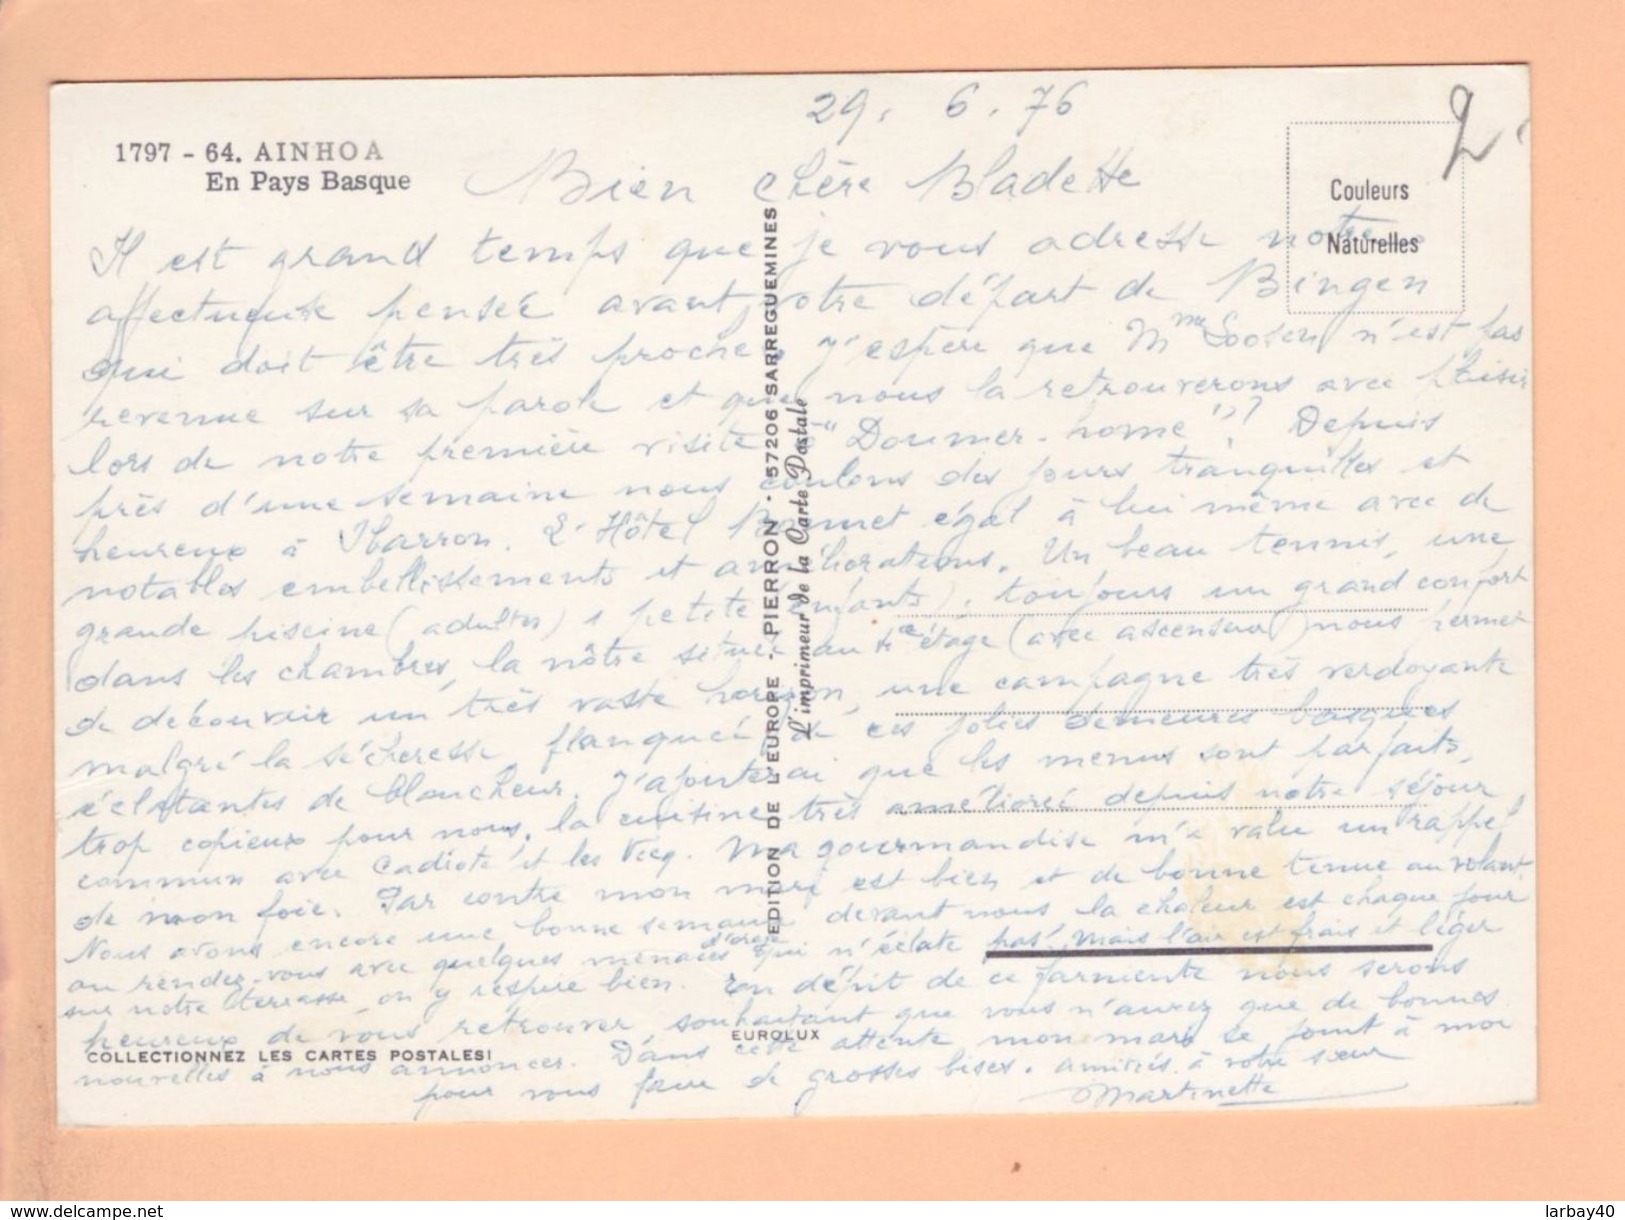 29. 6. 76
1797 - 64. AINHOA
En Pays Basque
Couleurs
Naturelles
2
Bien chère Bladette
Il est grand temps que je vous adresse notre
affectueuse pensée avant votre départ de Bingen
qui doit être très proche. J'espère que Mme Loosen n'est pas
revenue sur sa parole et que nous la retrouverons avec plaisir
lors de notre première visite à "Doumer-home"? Depuis
près d'une semaine nous coulons des jours tranquilles et
heureux à Ibarron. L'Hôtel égal à lui même avec de
notables embellissements et améliorations. Un beau tennis, une
grande piscine (adultes) 1 petite (enfants), toujours un grand confort
dans les chambres, la nôtre située au étage (avec ascenseur) nous permet
de découvrir un très vaste horizon, une campagne très verdoyante
malgré la sécheresse flanquée de ces jolies demeures basques
éclatantes de blancheur. J'ajouterai que les menus sont parfaits,
trop copieux pour nous, la cuisine très améliorée depuis notre séjour
commun avec et les Ma gourmandise m'a valu un rappel
de mon foie. Par contre mon mari est bien et de bonne tenue au volant.
Nous avons encore une bonne semaine devant nous la chaleur est chaque jour
au rendez-vous avec quelques menaces d'orage qui n'éclate pas, mais l'air est frais et léger
sur notre terrasse, on y respire bien. En dépit de ce farniente nous serons
heureux de vous retrouver, souhaitant que vous n'aurez que de bonnes
nouvelles à nous annoncer. Dans cette attente mon mari se joint à moi
pour vous faire de grosses bises. amitiés à votre sœur
Martinette
EDITION DE L'EUROPE - PIERRON - 57206 SARREGUEMINES
L'imprimeur de la Carte Postale
EUROLUX
COLLECTIONNEZ LES CARTES POSTALES!
delcampe.net
larbay40